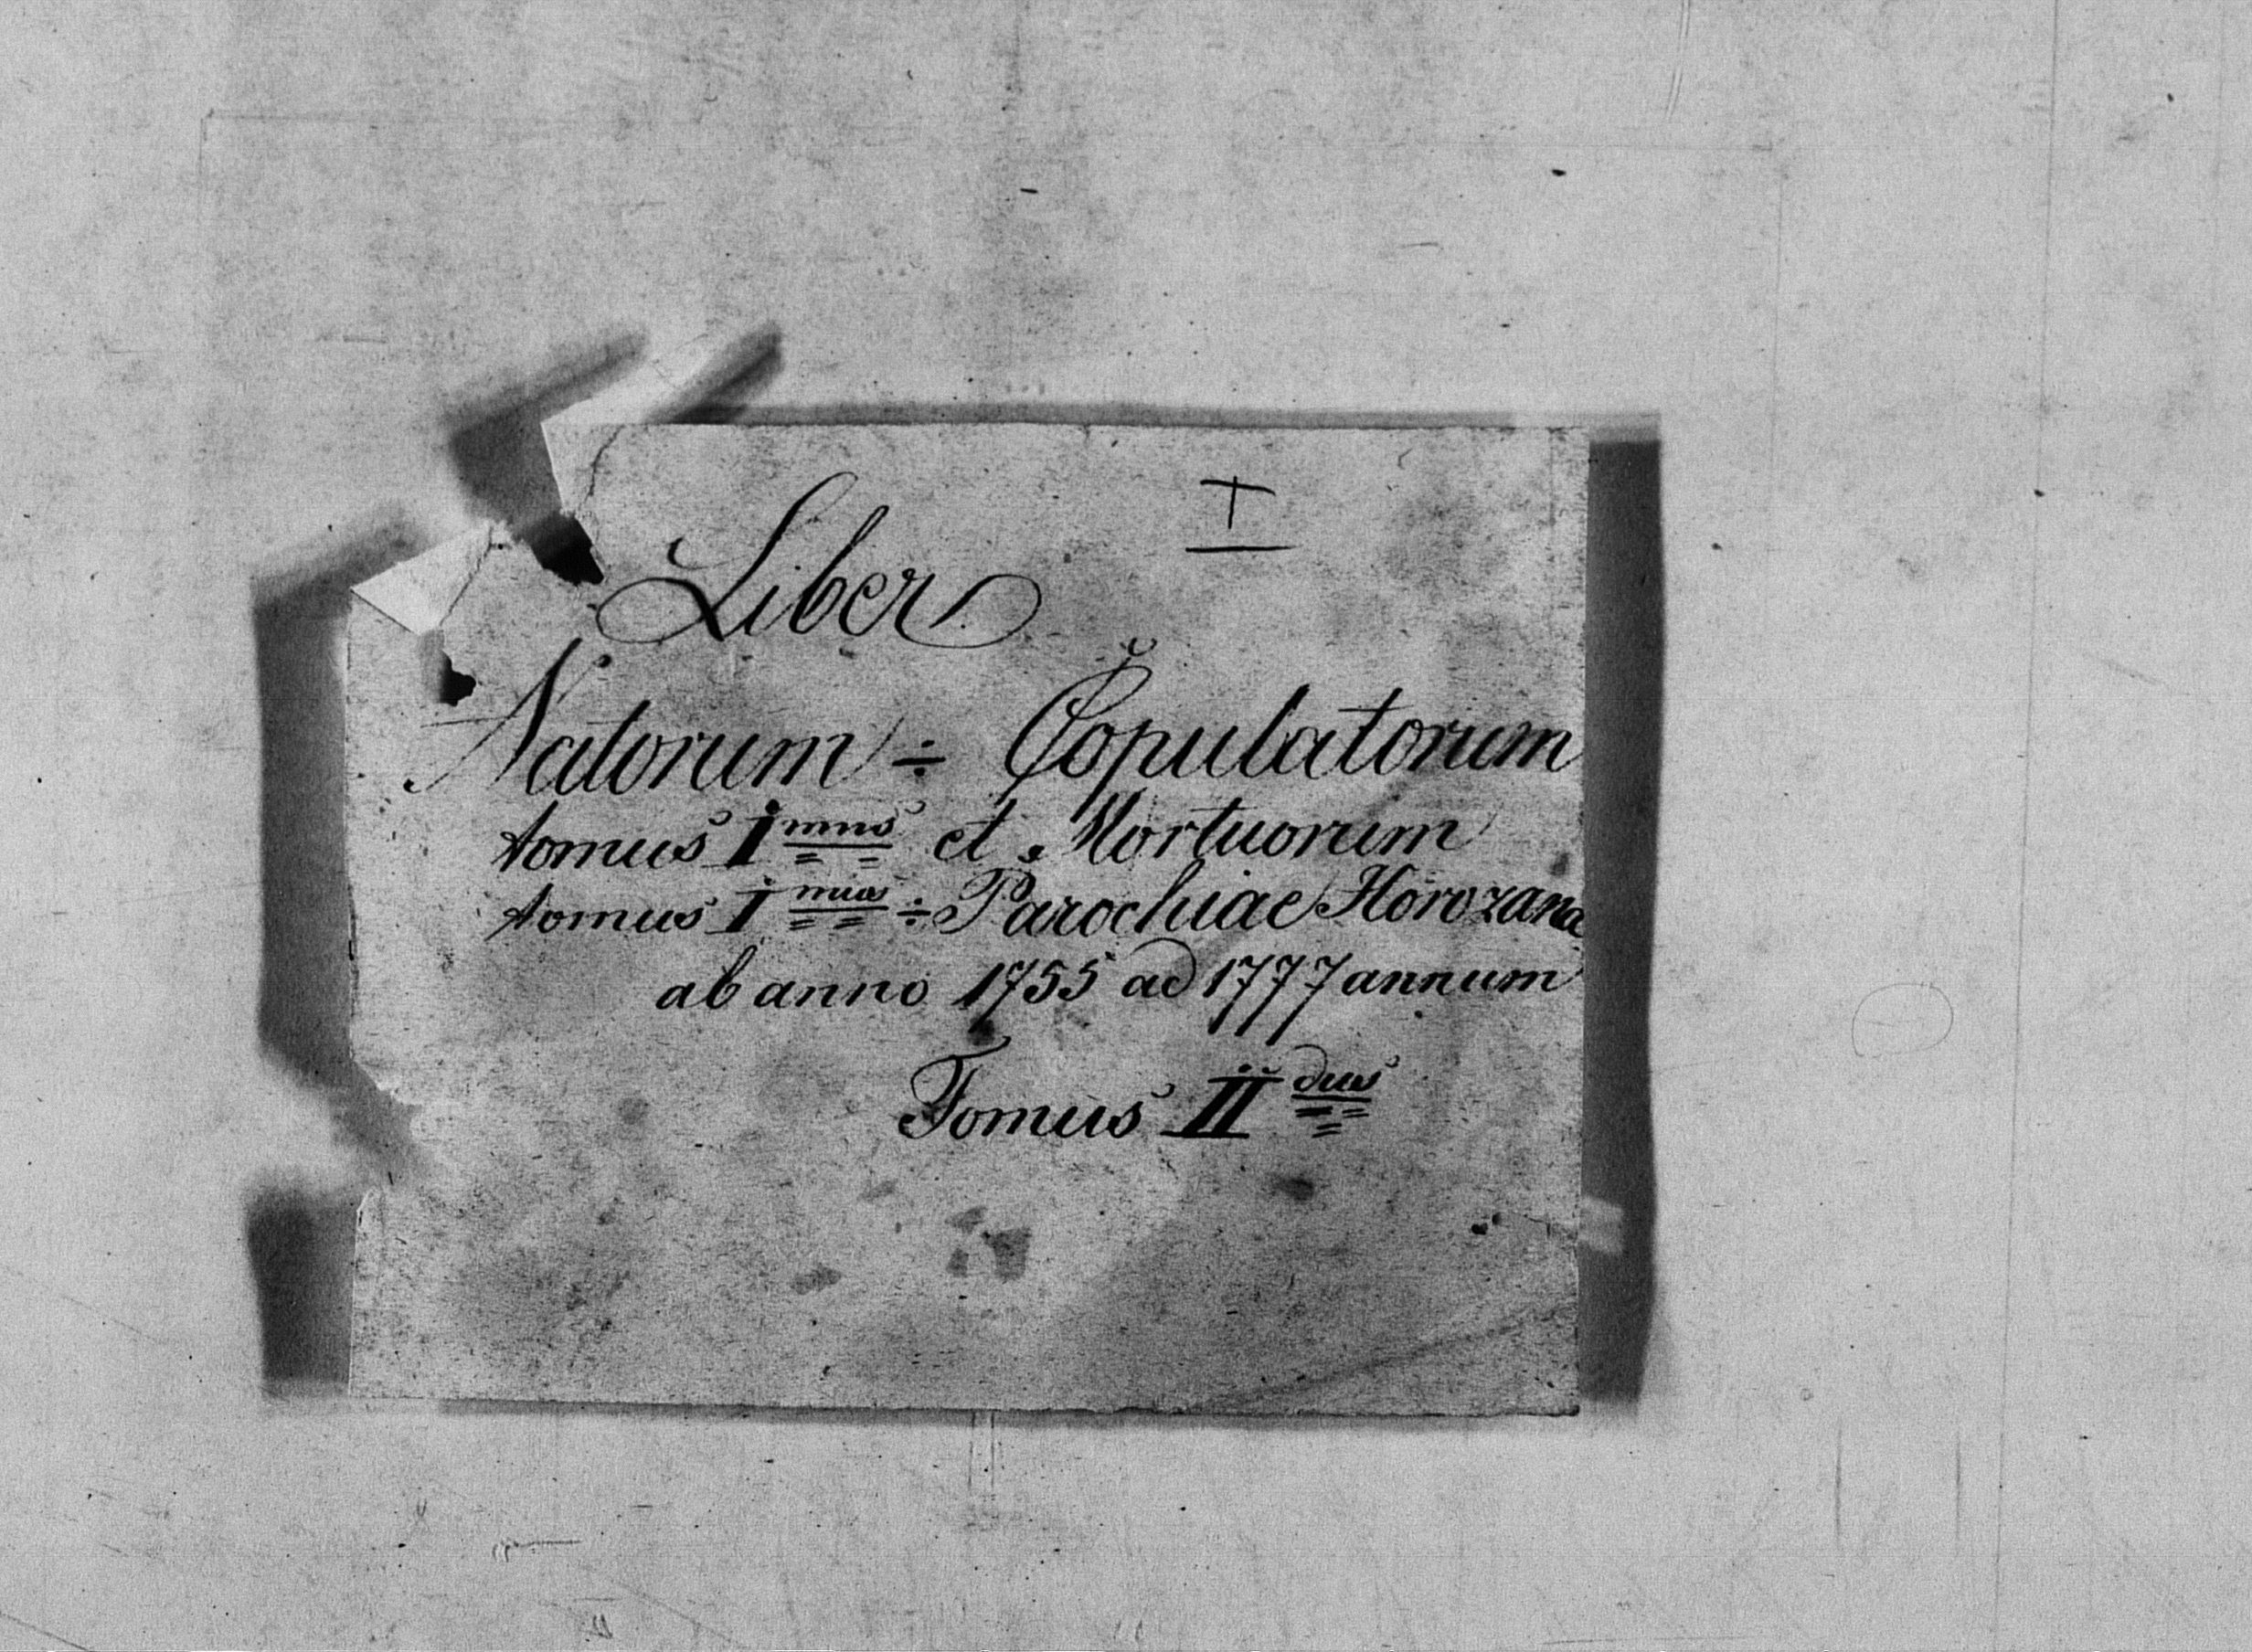 I
Liber
Natorum ÷ Copulatorum
tomus I mus et Mortuorum
tomus I mus ÷ Parochiae Horozana
ab anno 1755 ad 1777 annum
Tomus II dus